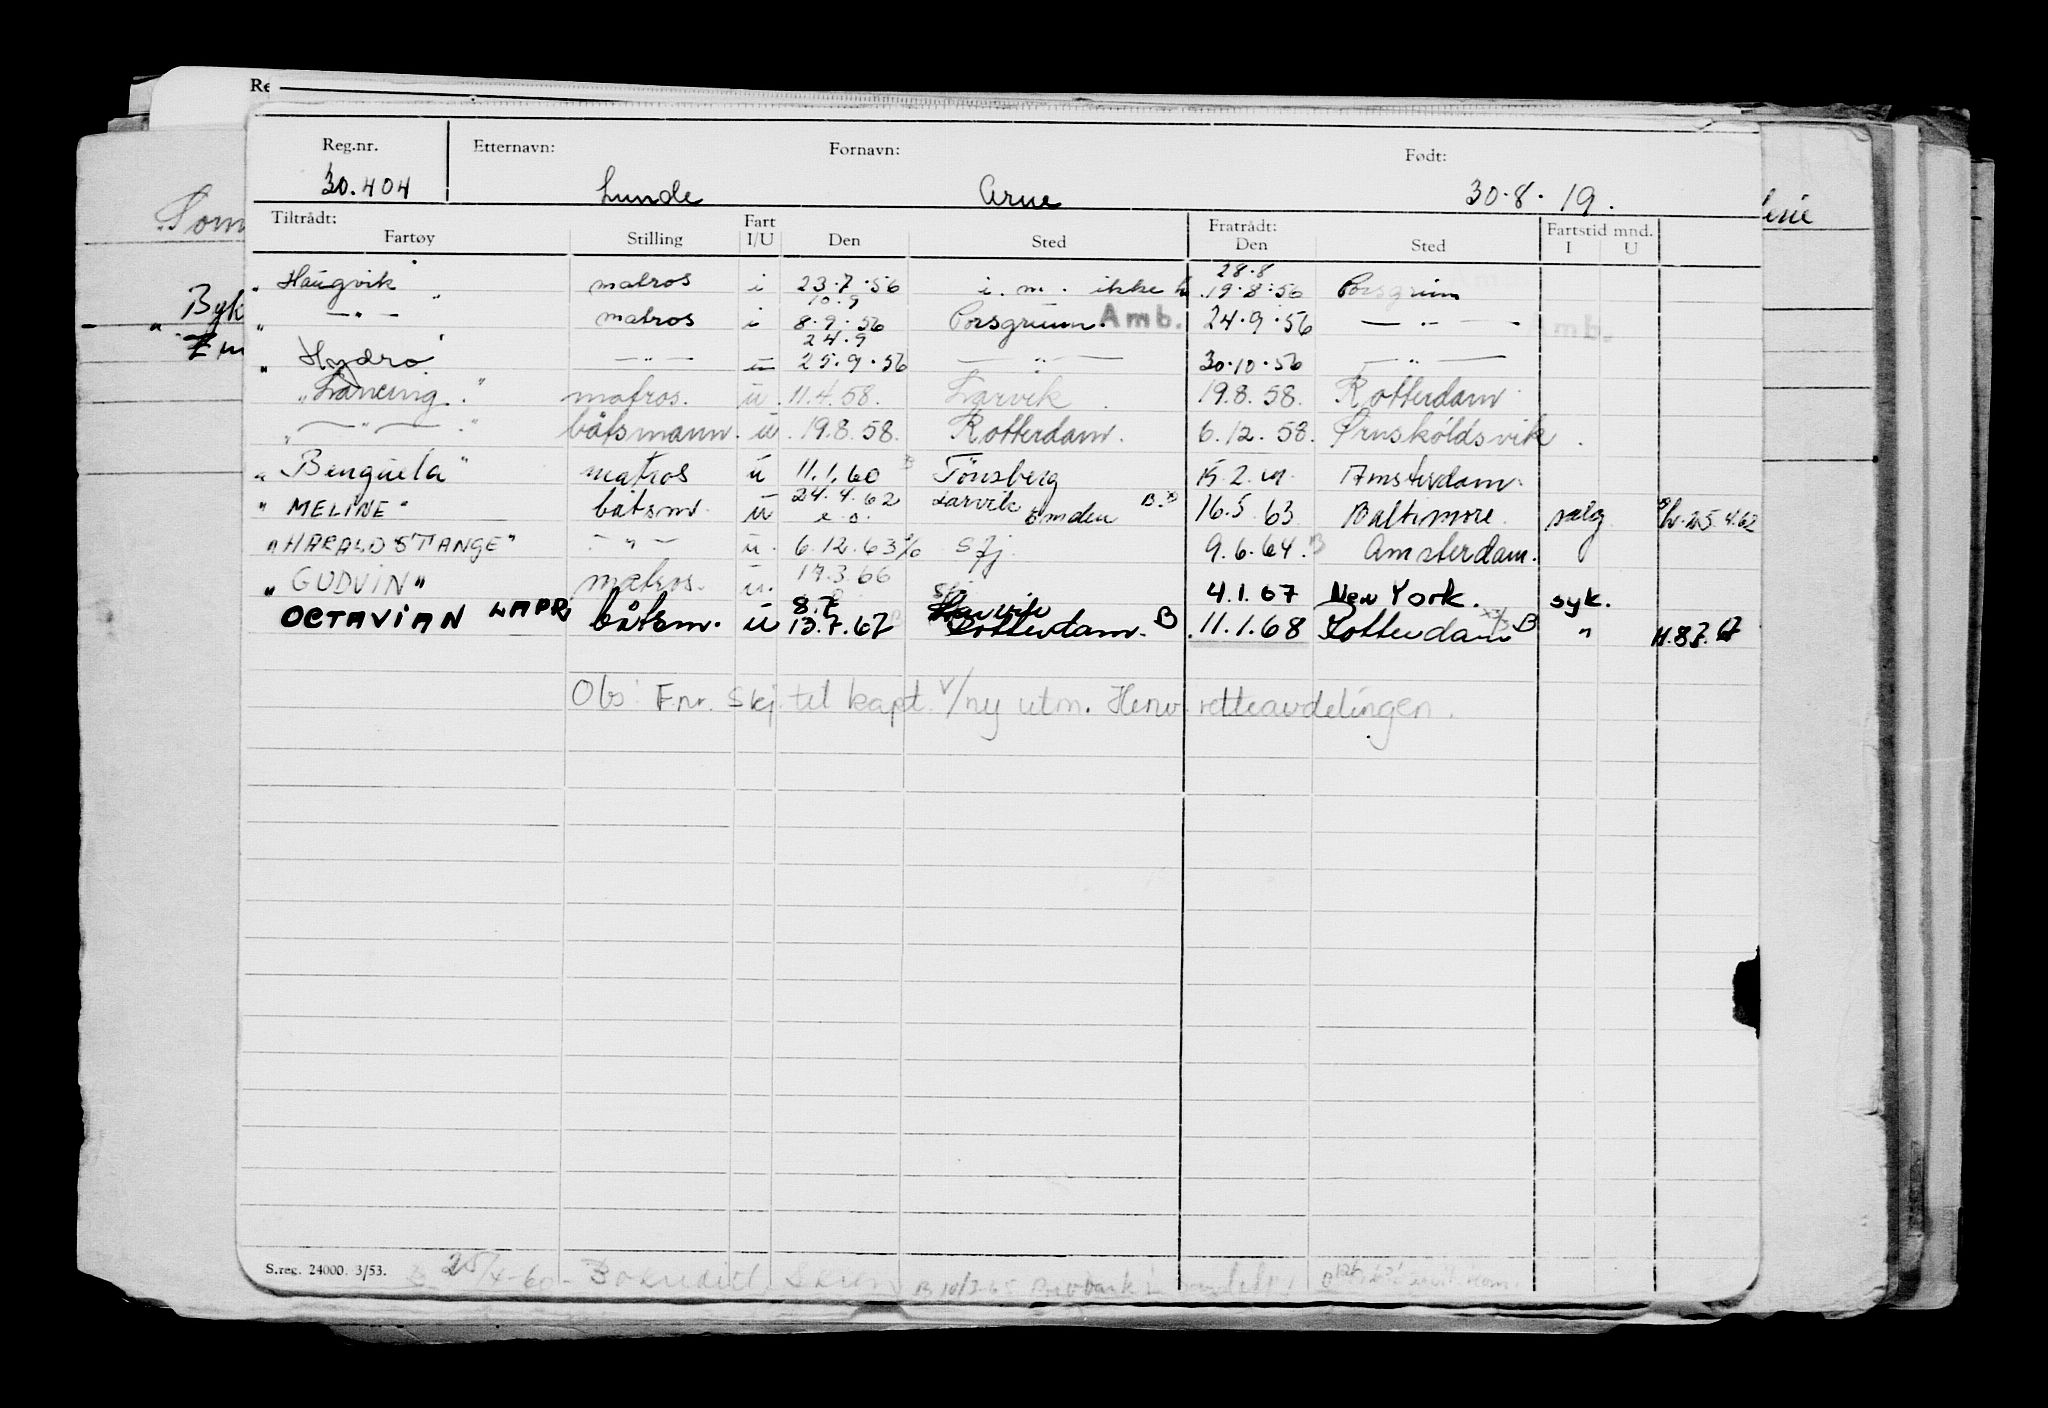 Re
Reg.nr. Etternavn: Fornavn: Født:
30.404 Lunde Arne 30.8.19.
Tiltrådt: Fartøy Stilling Fart I/U Den Sted Fratrådt: Den Sted Fartstid mnd. I U
28.8
"Haugvik" matros i 23.7.56 i.m. ikke 19.8.56 Porsgrunn
10.9
" —"— " matros i 8.9.56 Porsgrunn. Amb. 24.9.56 —"— Amb.
24.9
"Hydro" —"— u 25.9.56 —"— 30.10.56 —"—
"Lancing." matros. u. 11.4.58. Larvik 19.8.58. Rotterdam
" —"— ." båtsmann. u. 19.8.58. Rotterdam. 6.12.58. Ørnsköldsvik.
"Benguela" matros u 11.1.60 Tönsberg 15.2. Amsterdam.
24.4.62 Larvik
"MELINE" båtsm. u e.o. Emden B. 16.5.63 Baltimore. salg 25.4.62
"HARALD STANGE" —"— u. 6.12.63 Sfj. 9.6.64. B Amsterdam.
"GUDVIN" matros. u. 17.3.66 4.1.67 New York. syk.
8.7
OCTAVIAN båtsm. u 13.7.67 Rotterdam. B .11.1.68 Rotterdam B "
Obs! F.nr. Skj. til kapt. v/ny utm. Henv. retteavdelingen.
S.reg. 24000. 3/53.
Byk